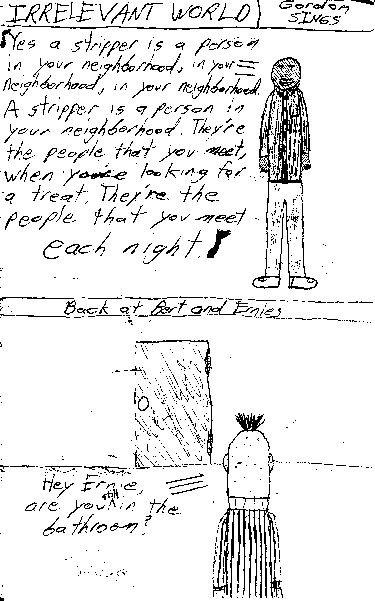 IRRELEVANT WORLD
Gordon
SINGS
Yes a stripper is a person
in your neighborhood, in your
neighborhood, in your neighborhood.
A stripper is a person in
your neighborhood. They're
the people that you meet,
when you're looking for
a treat. They're the
people that you meet
each night!
Back at Bert and Ernies
Hey Ernie,
are you still in the
bathroom?